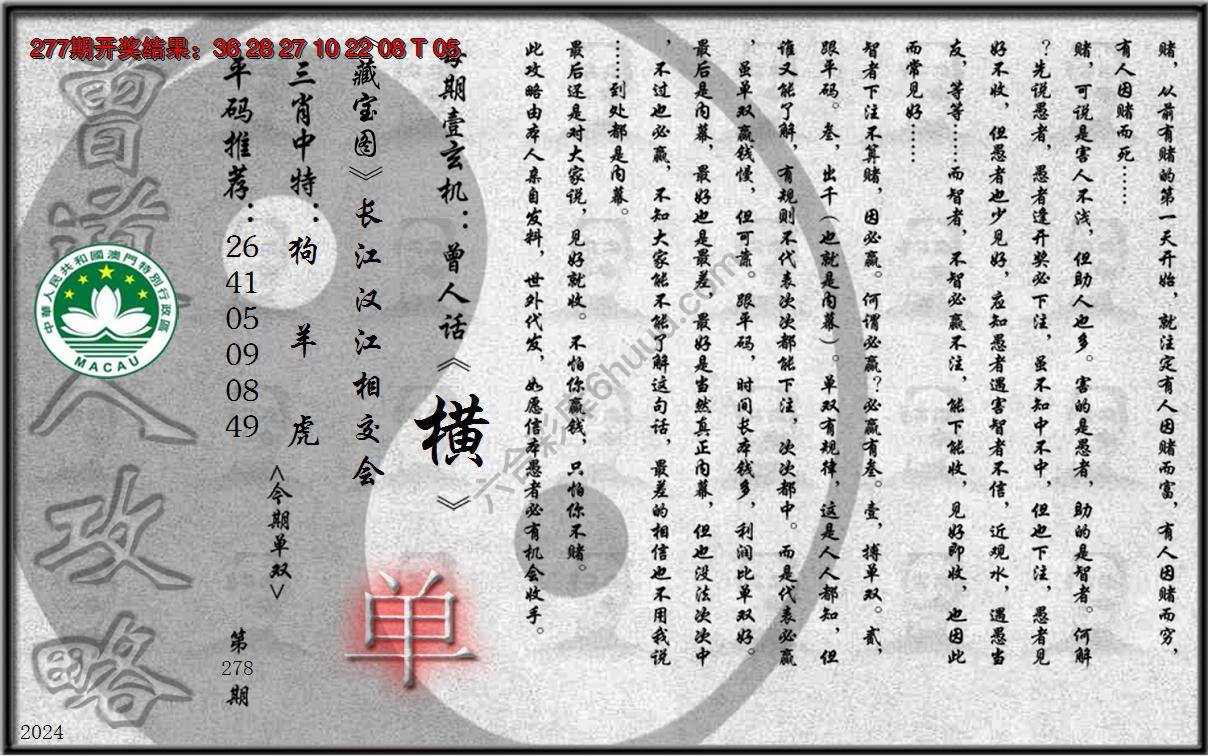 277期开奖结果：36 28 27 10 22 08 T 05
赌，从前有赌的第一天开始，就注定有人因赌而富，有人因赌而穷，
有人因赌而死……
赌，可说是害人不浅，但助人也多。害的是愚者，助的是智者。何解
？先说愚者，愚者逢开奖必下注，虽不知中不中，但也下注，愚者见
好不收，但愚者也少见好，应知愚者遇害智者不信，近观水，遇愚当
友，等等……而智者，不智必赢不注，能下能收，见好即收，也因此
而常见好……
智者下注不算赌，因必赢。何谓必赢？必赢有叁。壹，搏单双。贰，
跟平码。叁，出千（也就是内幕）。单双有规律，这是人人都知，但
谁又能了解，有规则不代表次次都能下注，次次都中。而是代表必赢
，虽单双赢钱慢，但可靠。跟平码，时间长本钱多，利润比单双好。
最后是内幕，最好也是最差，最好是当然真正内幕，但也没法次次中
，不过也必赢，不知大家能不能了解这句话，最差的相信也不用我说
……到处都是内幕。
最后还是对大家说，见好就收。不怕你赢钱，只怕你不赌。
此攻略由本人亲自发料，世外代发，如愿信本愚者必有机会收手。
每期壹玄机：曾人话《横》
《藏宝图》长江汉江相交会
三肖中特：狗 羊 虎
平码推荐：26 41 05 09 08 49
<今期单双>
单
第278期
曾道人攻略
中華人民共和國澳門特別行政區
MACAU
六合彩库6huuu.com
2024